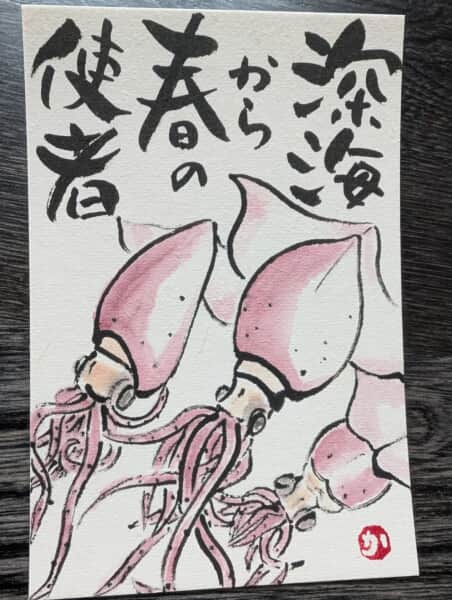 深海
から
春の
使者
か